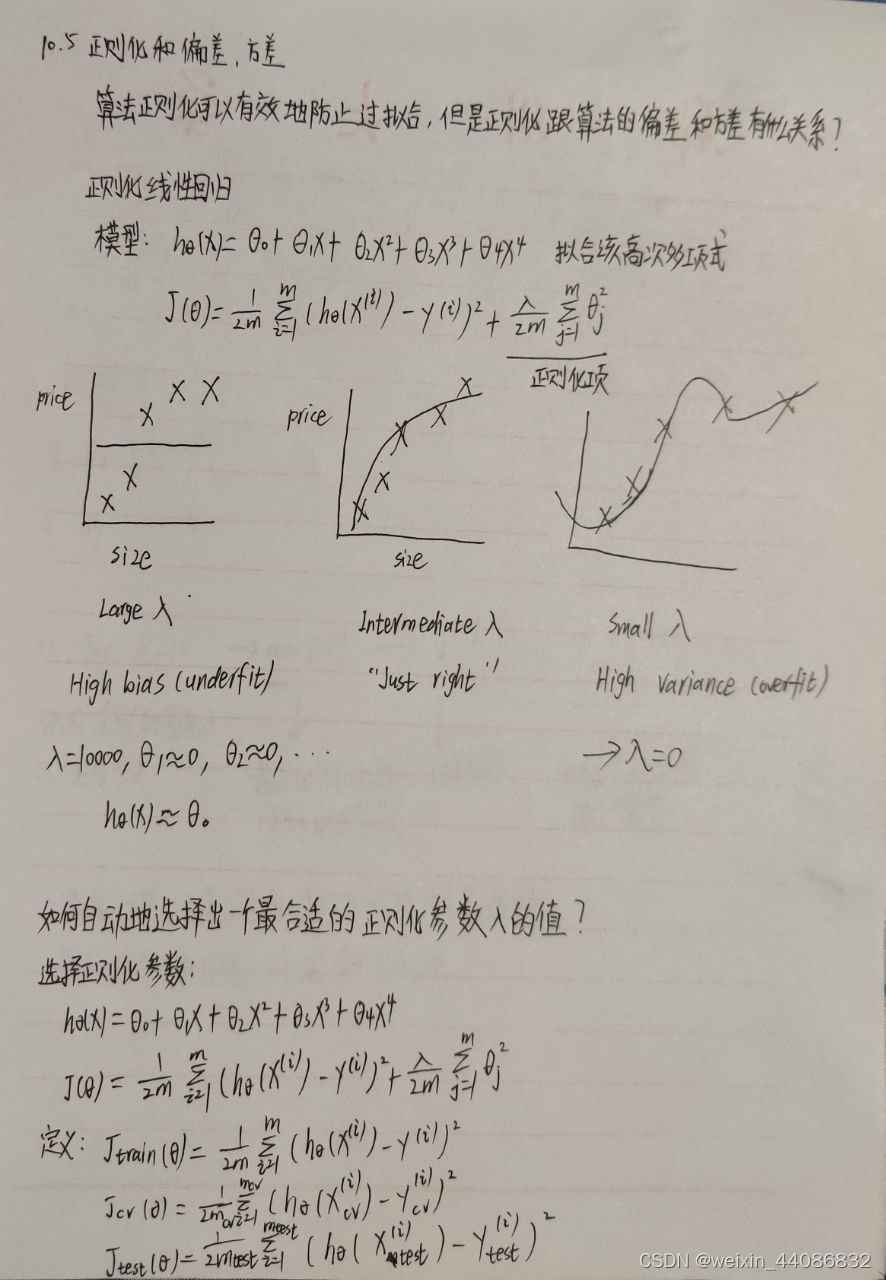 10.5 正则化和偏差、方差
算法正则化可以有效地防止过拟合,但是正则化跟算法的偏差和方差有什么关系?
正则化线性回归
模型: hθ(x)= θ0+ θ1x+ θ2x²+ θ3x³+ θ4x⁴ 拟合该高次多项式
J(θ)= 1/2m ∑_{i=1}^{m} (hθ(x^(i)) - y^(i))² + λ/2m ∑_{j=1}^{m} θj²
正则化项
price
size
Large λ
High bias (underfit)
λ=10000, θ1≈0, θ2≈0, ...
hθ(x) ≈ θ0
price
size
Intermediate λ
"Just right"
Small λ
High variance (overfit)
→ λ=0
如何自动地选择出一个最合适的正则化参数λ的值?
选择正则化参数:
hθ(x) = θ0+ θ1x + θ2x² + θ3x³ + θ4x⁴
J(θ) = 1/2m ∑_{i=1}^{m} (hθ(x^(i)) - y^(i))² + λ/2m ∑_{j=1}^{m} θj²
定义: Jtrain(θ) = 1/2m ∑_{i=1}^{m} (hθ(x^(i)) - y^(i))²
Jcv(θ) = 1/2mcv ∑_{i=1}^{mcv} (hθ(xcv^(i)) - ycv^(i))²
Jtest(θ) = 1/2mtest ∑_{i=1}^{mtest} (hθ(xtest^(i)) - ytest^(i))²
CSDN @weixin_44086832